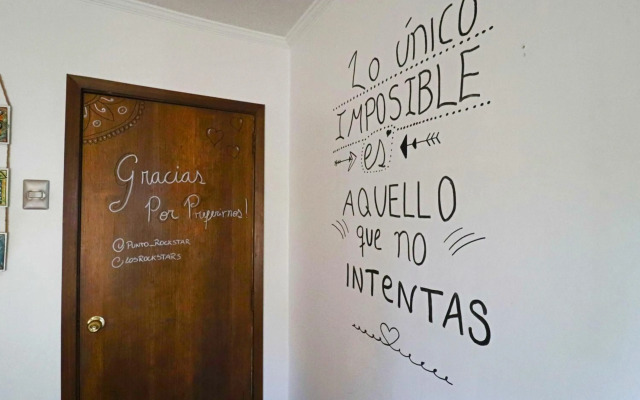 Gracias
Por Preferirnos!
@PUNTO_ROCKSTAR
LOSROCKSTARS
Lo único
IMPOSIBLE
es
AQUELLO
que no
INTENTAS